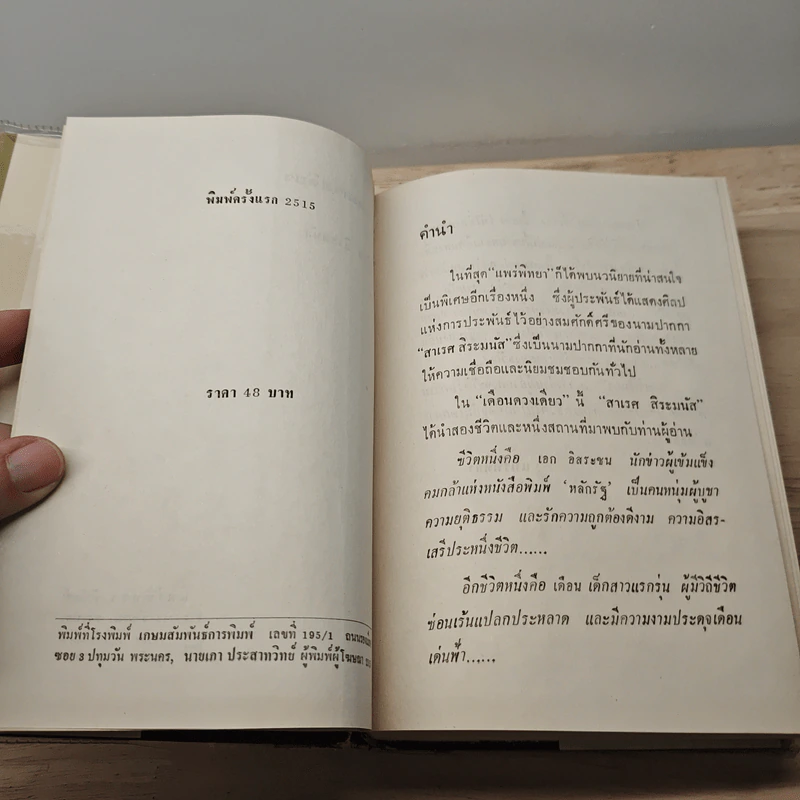 พิมพ์ครั้งแรก 2515
ราคา 48 บาท
พิมพ์ที่โรงพิมพ์ เกษมสัมพันธ์การพิมพ์ เลขที่ 195/1
ซอย 3 ปทุมวัน พระนคร, นายเภา ประสาทวิทย์ ผู้พิมพ์ผู้โฆษณา
คำนำ
ในที่สุด "แพร่พิทยา" ก็ได้พบนวนิยายที่น่าสนใจ
เป็นพิเศษอีกเรื่องหนึ่ง ซึ่งผู้ประพันธ์ได้แสดงศิลป
แห่งการประพันธ์ไว้อย่างสมศักดิ์ศรีของนามปากกา
"สาเรศ สิระมนัส" ซึ่งเป็นนามปากกาที่นักอ่านทั้งหลาย
ให้ความเชื่อถือและนิยมชมชอบกันทั่วไป
ใน "เดือนดวงเดียว" นี้ "สาเรศ สิระมนัส"
ได้นำสองชีวิตและหนึ่งสถานที่มาพบกับท่านผู้อ่าน
ชีวิตหนึ่งคือ เอก อิสระชน นักข่าวผู้เข้มแข็ง
คมกล้าแห่งหนังสือพิมพ์ 'หลักรัฐ' เป็นคนหนุ่มผู้บูชา
ความยุติธรรม และรักความถูกต้องดีงาม ความอิสร-
เสรีประหนึ่งชีวิต......
อีกชีวิตหนึ่งคือ เดือน เด็กสาวแรกรุ่น ผู้มีวิถีชีวิต
ซ่อนเร้นแปลกประหลาด และมีความงามประดุจเดือน
เด่นฟ้า......